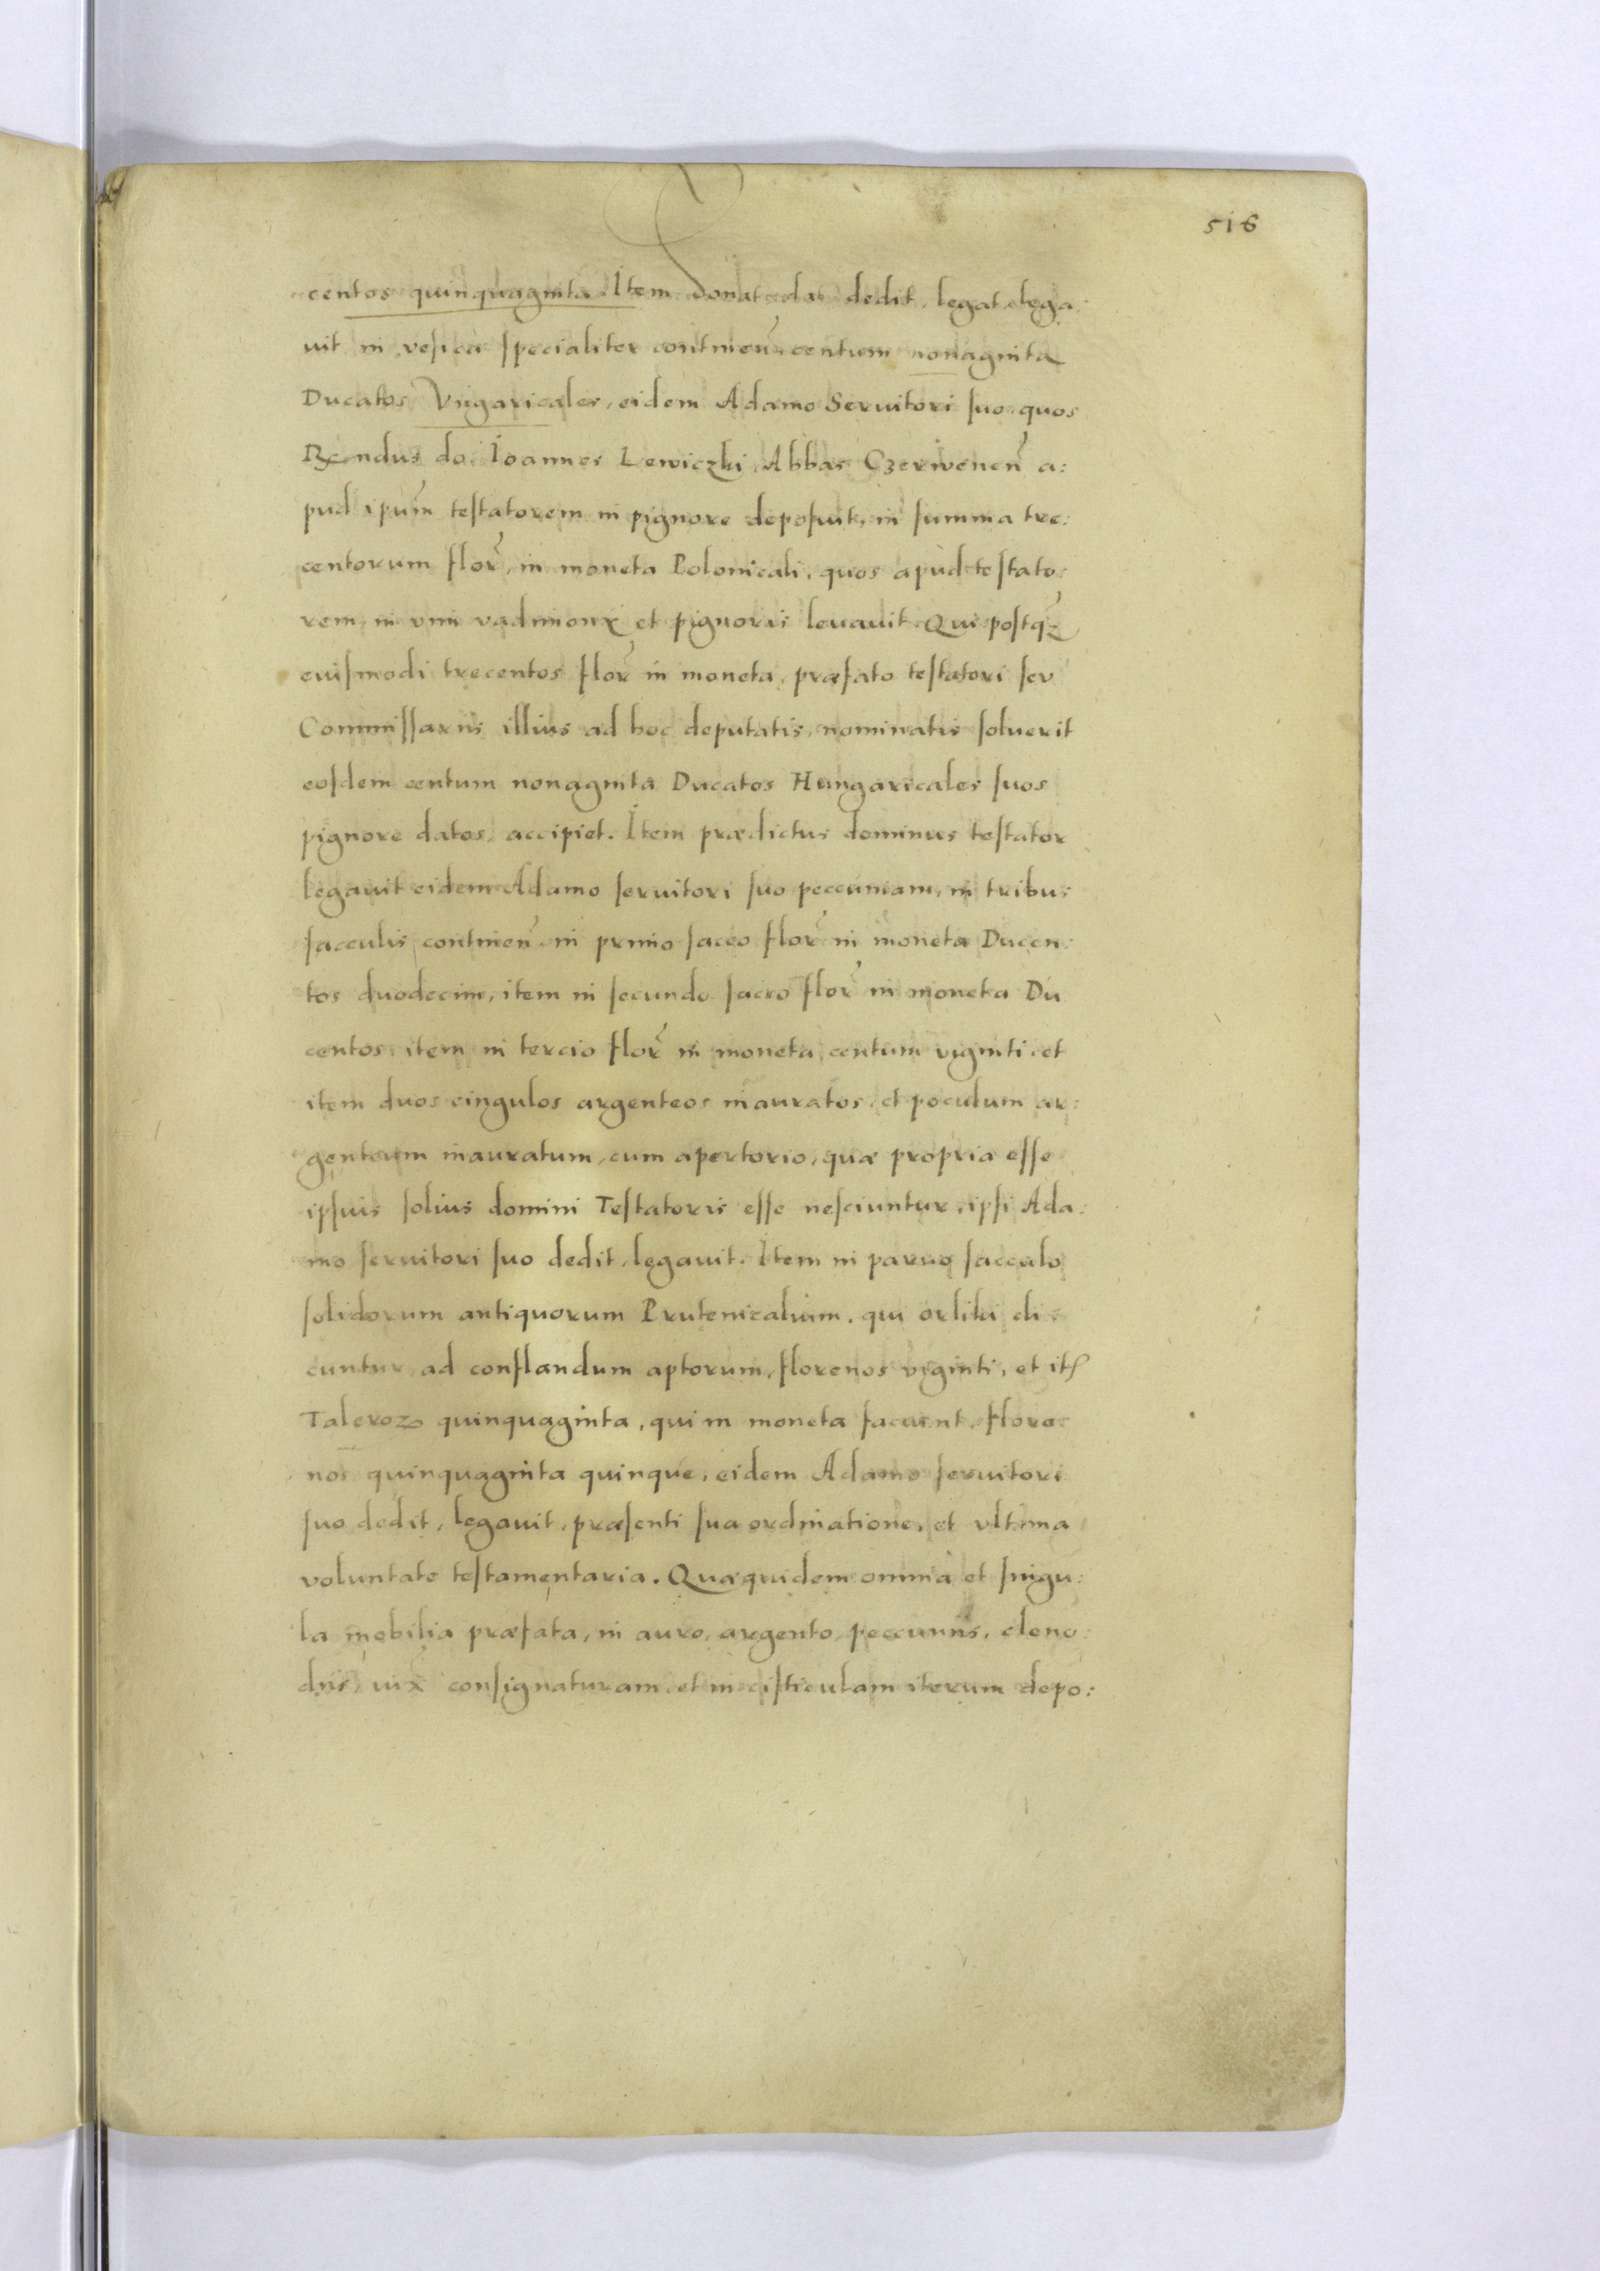 516
centos quinquaginta Item donat dat dedit, legat lega
uit in vesica specialiter continen̄ centum nonaginta
Ducatos Vngaricales, eidem Adamo Seruitori suo, quos
Rendus do. Ioannes Lewiczki Abbas Czerwenen̄ a:
pud ipūm testatorem in pignore deposuit, in summa tre:
centorum flor̄, in moneta Polonicali, quos apud testato:
rem, in vim vadimonx et pignoris leuauit. Qui postq̄z
euismodi trecentos flor̄ in moneta, præfato testatori seu
Commissariis illius ad hoc deputatis, nominatis soluerit
eosdem centum nonaginta Ducatos Hungaricales suos
pignore datos, accipiet. Item prædictus dominus testator
legauit eidem Adamo seruitori suo peccuniam, in tribus
sacculis continen̄ in primo sacco flor̄ in moneta Ducen:
tos duodecim, item in secundo sacco flor̄ in moneta Du
centos, item in tercio flor̄ in moneta, centum viginti, et
item duos cingulos argenteos inauratos, et poculum ar:
genteum inauratum, cum apertorio, quæ propria esse
ipsius solius domini Testatoris esse nesciuntur, ipsi Ada:
mo seruitori suo dedit, legauit. Item in paruo sacculo
solidorum antiquorum Prutenicalium, qui orliki di:
cuntur, ad conflandum aptorum, florenos viginti, et itꝭ
Taleroꝝ quinquaginta, qui in moneta faciunt, flore:
nos quinquaginta quinque, eidem Adamo seruitori
suo dedit, legauit, præsenti sua ordinatione, et vltima
voluntate testamentaria. Quæquidem omnia et singu:
la mobilia præfata, in auro, argento, peccuniis, cleno:
diis, iux̄ consignaturam et in cisticulam iterum depo: